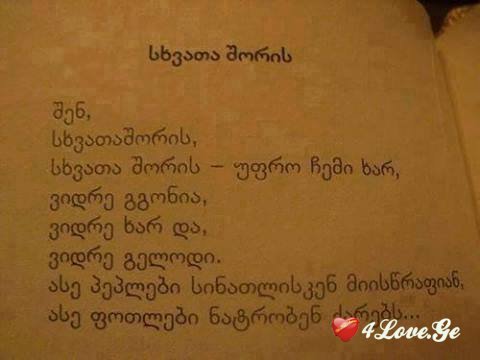 სხვათა შორის
შენ,
სხვათაშორის,
სხვათა შორის – უფრო ჩემი ხარ,
ვიდრე გგონია,
ვიდრე ხარ და,
ვიდრე გელოდი.
ასე პეპლები სინათლისკენ მიისწრაფიან,
ასე ფოთლები ნატრობენ ქარებს...
4Love.Ge